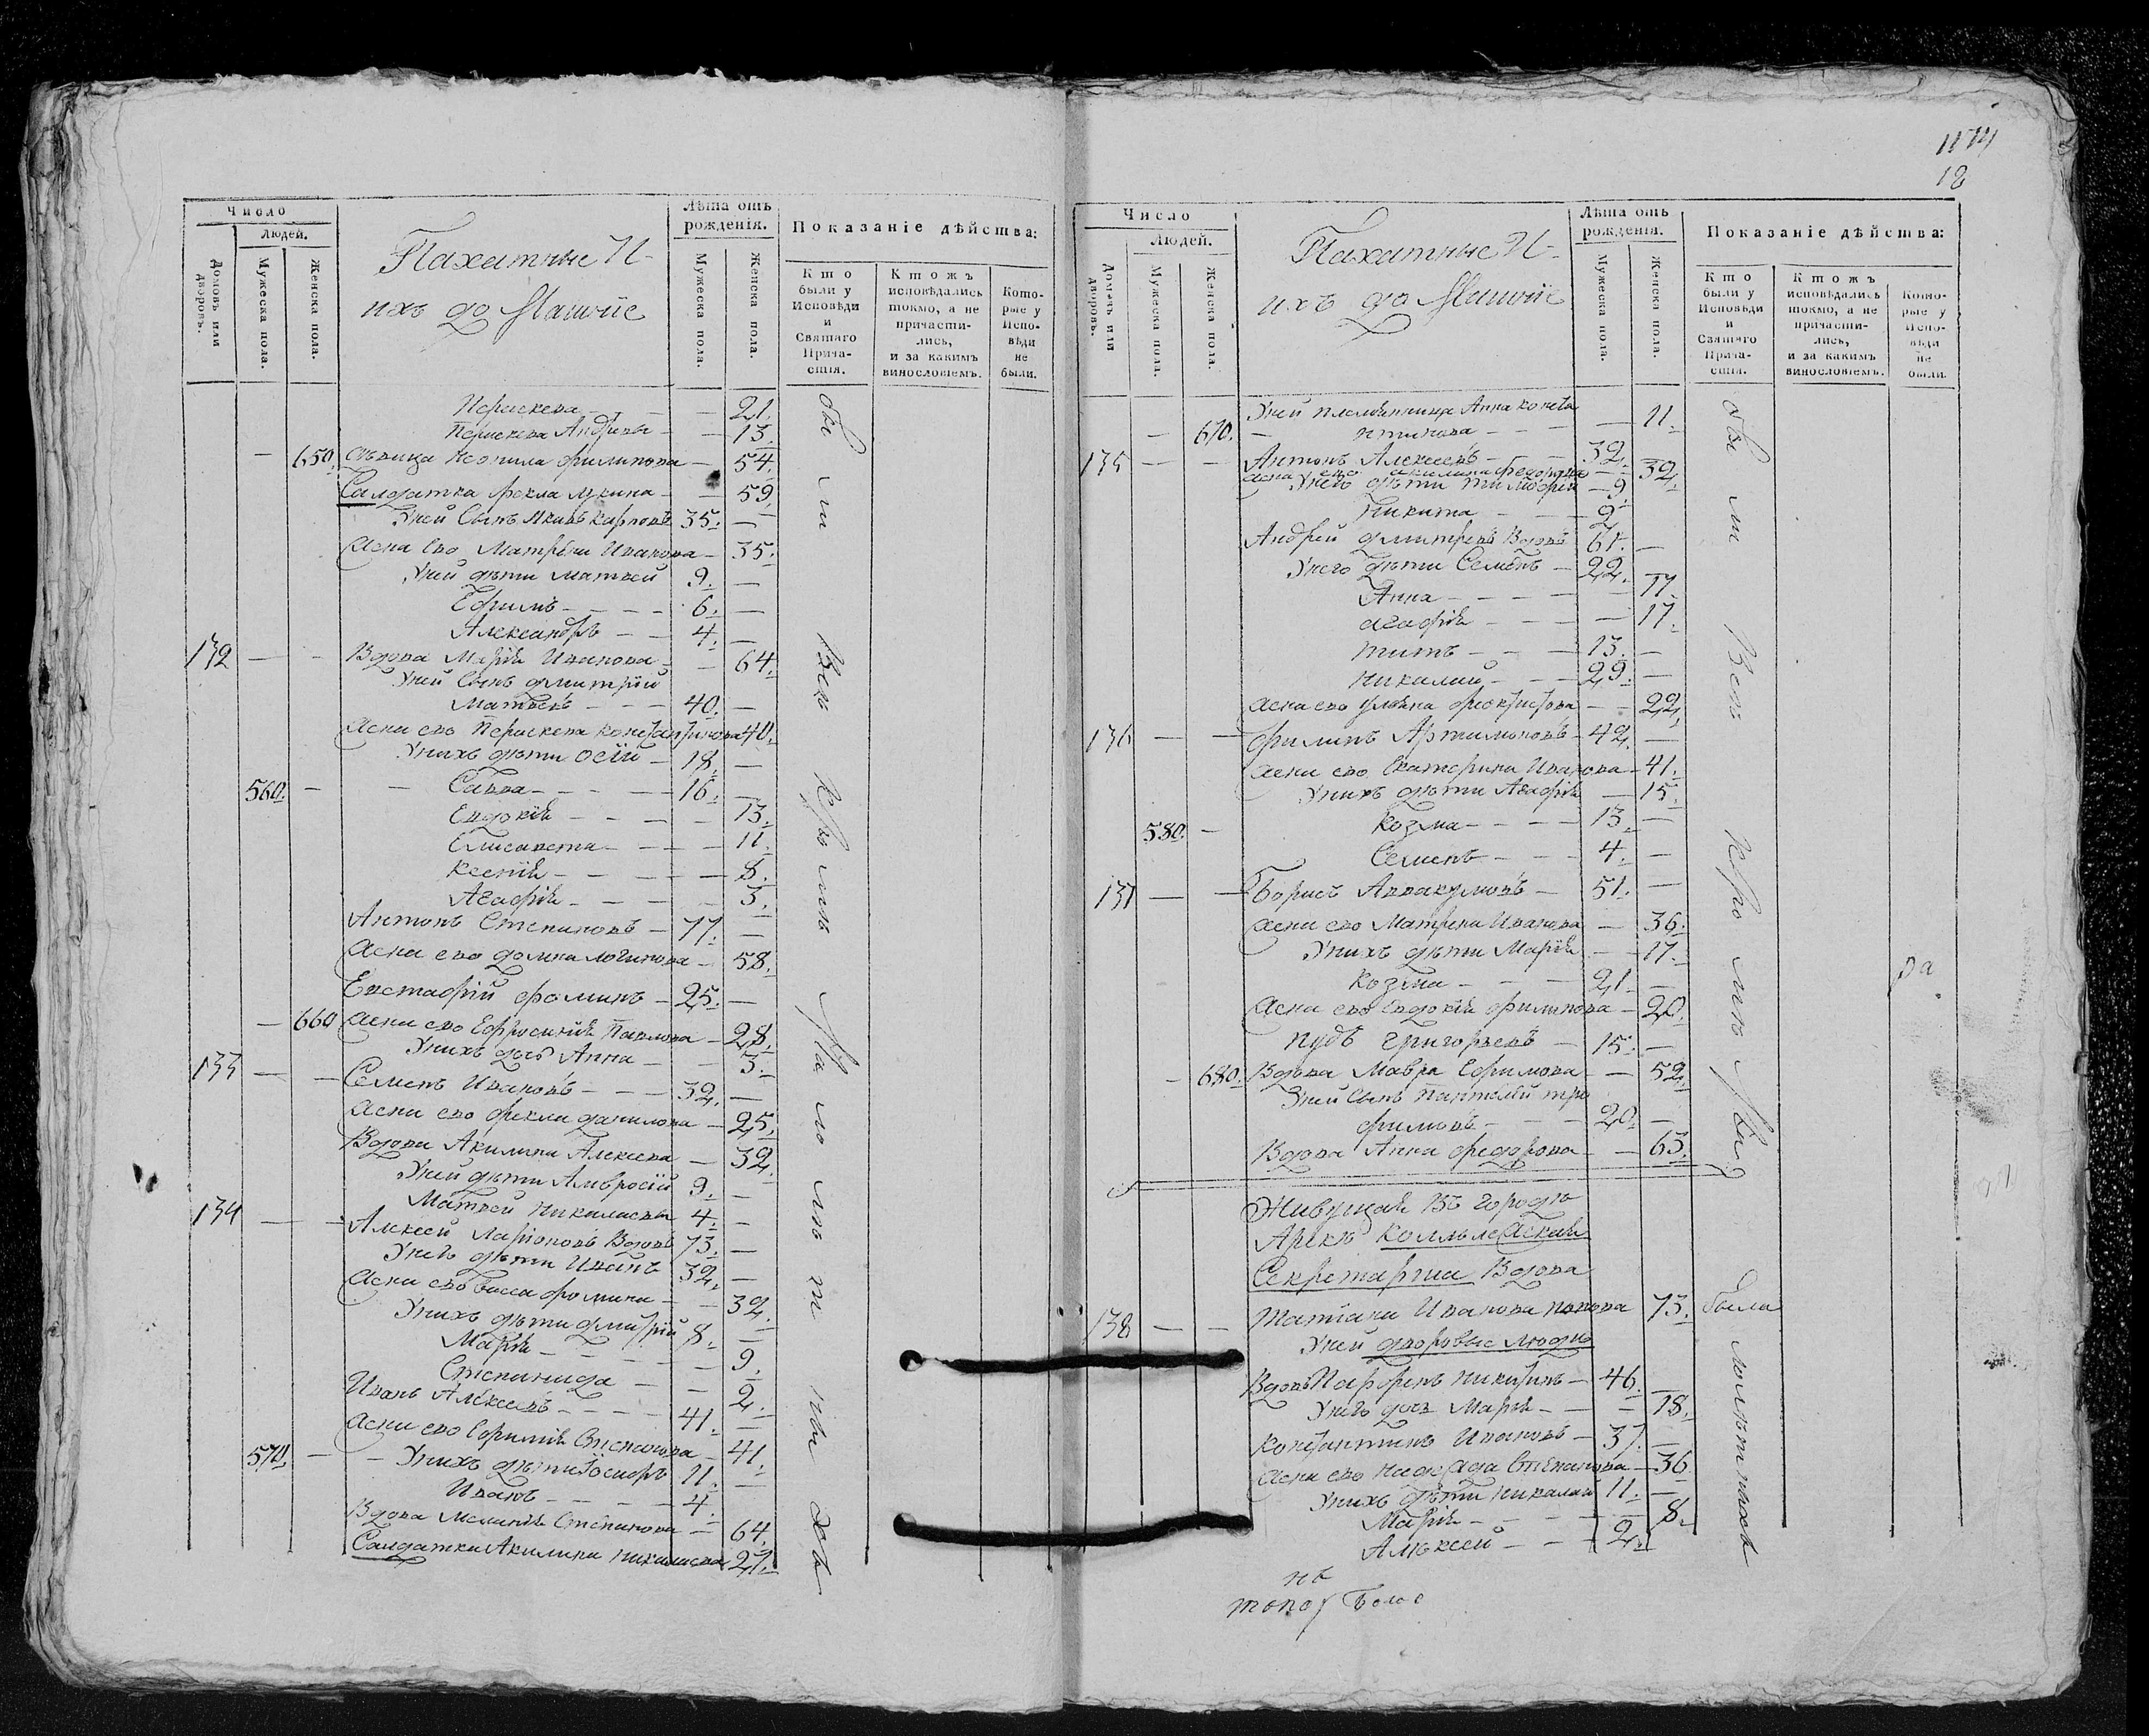 Число
Людей.
Домовъ или дворовъ.
Мужеска пола.
Женска пола.
Пахатные И
ихъ до
Лѣта отъ рожденія.
Мужеска пола.
Женска пола.
Показаніе дѣйства:
Кто были у Исповѣди и Святаго Прича-стія.
Ктожъ исповѣдались токмо, а не причасти-лись, и за какимъ винословіемъ.
Кото-рые у Испо-вѣди не были.
Параскева — 21.
Параскева Андреева — 13.
— 650. Дѣвица Неонила Филипова — 54.
Салдатка Фекла Лукина — 59.
Уней Сынъ Яковъ Карповъ 35. —
Жена ево Матрена Иванова — 35.
Уней дѣти Матвей 9. —
Ефимъ — 6. —
Александръ — 4. —
132 — — Вдова Марія Иванова — 64.
Уней Сынъ Дмитрій
Матвеевъ — 40. —
Жена ево Параскева Константинова 40.
Унихъ дѣти Осій — 18. —
560. — — Савва — 16. —
Евдокія — 13.
Елисавета — 11.
Ксенія — 8.
Агафія — 3.
Антонъ Степановъ — 77. —
Жена ево Домна Логинова — 58.
Евстафій Фоминъ — 25. —
— 660 Жена ево Ефросинія Павлова — 28.
Унихъ дочь Анна — 3.
133 — — Семенъ Ивановъ — 32. —
Жена ево Фекла Данилова — 25.
Вдова Акилина Алексеева — 32.
Уней дѣти Амвросій 9. —
Матвей Николаевы 4. —
134 — — Алексей Ларіоновъ Вдовъ 73. —
Унево дѣти Иванъ 32. —
Жена ево Васса Фомина — 32.
Унихъ дѣти Дмитрій 8. —
Марія — 9.
Степанида — 2.
Иванъ Алексеевъ — 41. —
Жена ево Ефимія Степанова — 41.
570. — — Унихъ дѣти Іосифъ 11. —
Иванъ — 4.
Вдова Меланія Степанова — 64.
Салдатка Акилина Николаева 27.
бы ли Всѣ Кромѣ Ма ло лѣ т ны хъ
1174
18
Число
Людей.
Домовъ или дворовъ.
Мужеска пола.
Женска пола.
Пахатные И
ихъ до
Лѣта отъ рожденія.
Мужеска пола.
Женска пола.
Показаніе дѣйства:
Кто были у Исповѣди и Святаго Прича-стія.
Ктожъ исповѣдались токмо, а не причасти-лись, и за какимъ винословіемъ.
Кото-рые у Испо-вѣди не были.
Уней племянница Анна Конста
— 670. — нтинова — 11.
135 — — Антонъ Алексеевъ — 32.
Жена ево Акилина Федорова — 32.
Унево дѣти Тимофей — 9.
Никита — 9
Андрей Дмитревъ Вдовъ 67. —
Унего дѣти Семенъ — 22.
Анна — 17.
Агафія — 17.
Титъ — 13. —
Николай — 29. —
Жена ево Ульяна Феоктистова — 22.
136 — — Филипъ Артамоновъ — 42. —
Жена ево Екатерина Иванова — 41.
Унихъ дѣти Агафія — 15.
580. — Козма — 13. —
Семенъ — 4. —
137 — — Борисъ Аввакумовъ — 51. —
Жена ево Матрена Иванова — 36.
Унихъ дѣти Марія — 17.
Козма — 21. —
Жена ево Евдокія Филипова — 20.
Пудъ Григорьевъ — 15. —
— 680. Вдова Мавра Ефимова — 52.
Уней Сынъ Пантелей Тро
фимовъ — 20. —
Вдова Анна Федорова — 63.
Живущая Въ городѣ
Арскѣ Коллежская
Секретарша Вдова
138 — — Татіана Иванова Попова 73. была
Уней дворовые люди
Вдовъ Парфенъ Никитинъ — 46. —
Унего дочь Марія — 18.
Константинъ Ивановъ — 37. —
Жена ево Надежда Степанова — 36
Унихъ дѣти Николай 11. —
Марія — 8.
Алексей — 2.